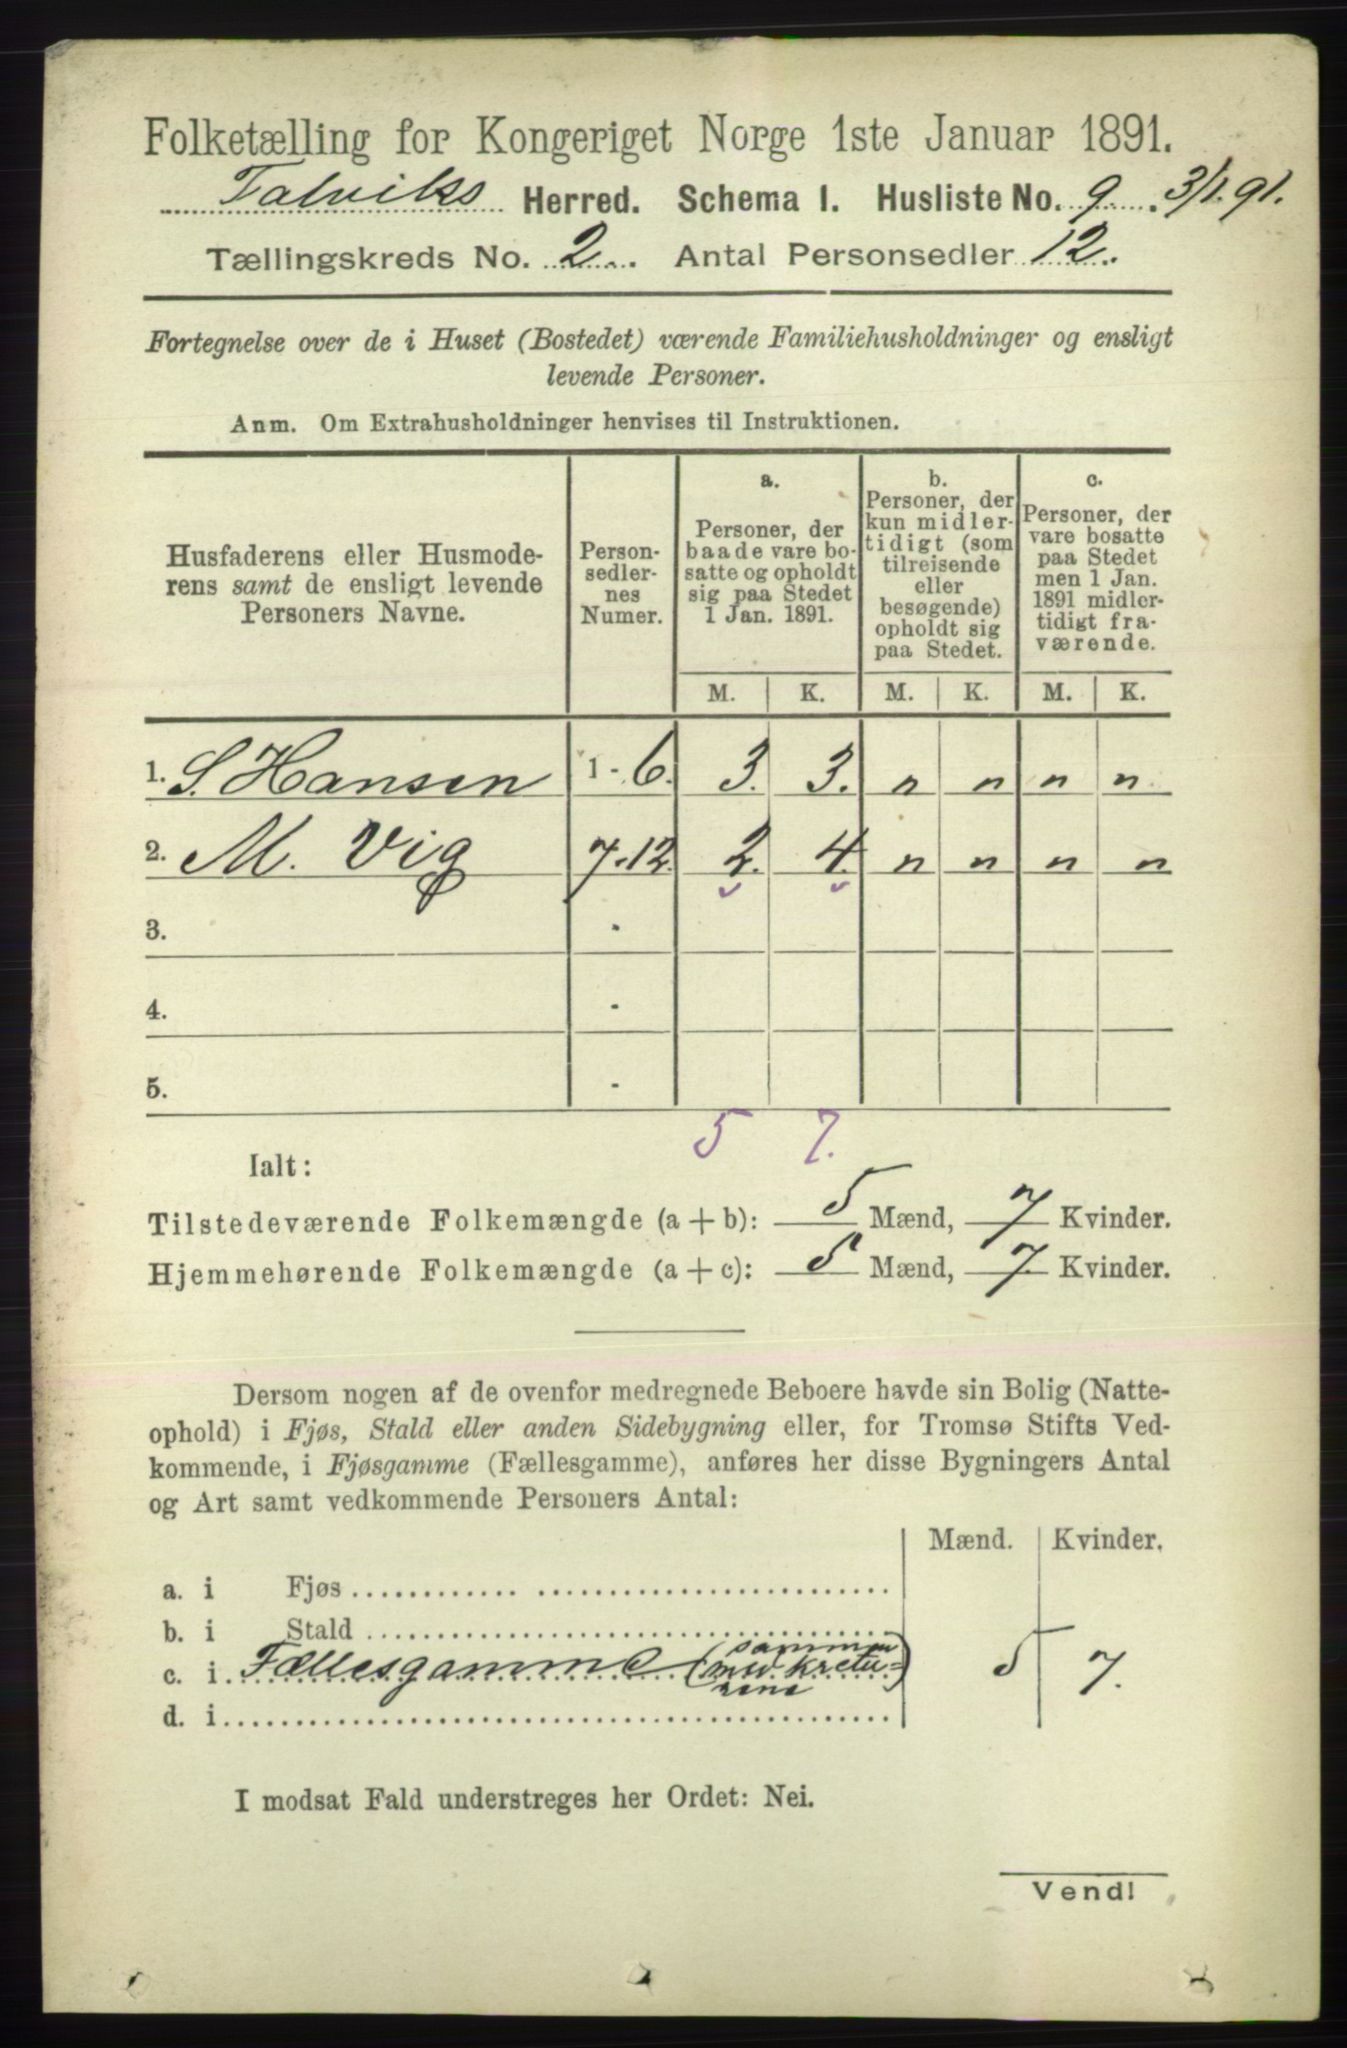 Folketælling for Kongeriget Norge 1ste Januar 1891.
Talviks Herred. Schema 1. Husliste No. 9. 3/1.91.
Tællingskreds No. 2. Antal Personsedler 12.
Fortegnelse over de i Huset (Bostedet) værende Familiehusholdninger og ensligt
levende Personer.
Anm. Om Extrahusholdninger henvises til Instruktionen.
Husfaderens eller Husmode-
rens samt de ensligt levende
Personers Navne.
Person-
sedler-
nes
Numer.
a.
Personer, der
baade vare bo-
satte og opholdt
sig paa Stedet
1 Jan. 1891.
b.
Personer, der
kun midler-
tidigt (som
tilreisende
eller
besøgende)
opholdt sig
paa Stedet.
c.
Personer, der
vare bosatte
paa Stedet
men 1 Jan.
1891 midler-
tidigt fra-
værende.
M. K. M. K. M. K.
1. S. Hansen 1-6. 3. 3. n n n n
2. M. Vig 7-12. 2. 4. n n n n
3. -
4. -
5. -
5 7.
Ialt:
Tilstedeværende Folkemængde (a + b): 5 Mænd, 7 Kvinder.
Hjemmehørende Folkemængde (a + c): 5 Mænd, 7. Kvinder.
Dersom nogen af de ovenfor medregnede Beboere havde sin Bolig (Natte-
ophold) i Fjøs, Stald eller anden Sidebygning eller, for Tromsø Stifts Ved-
kommende, i Fjøsgamme (Fællesgamme), anføres her disse Bygningers Antal
og Art samt vedkommende Personers Antal:
Mænd. Kvinder.
a. i Fjøs
b. i Stald
c. i Fællesgamme (sammen med kreturene) 5 7.
d. i
I modsat Fald understreges her Ordet: Nei.
Vend!